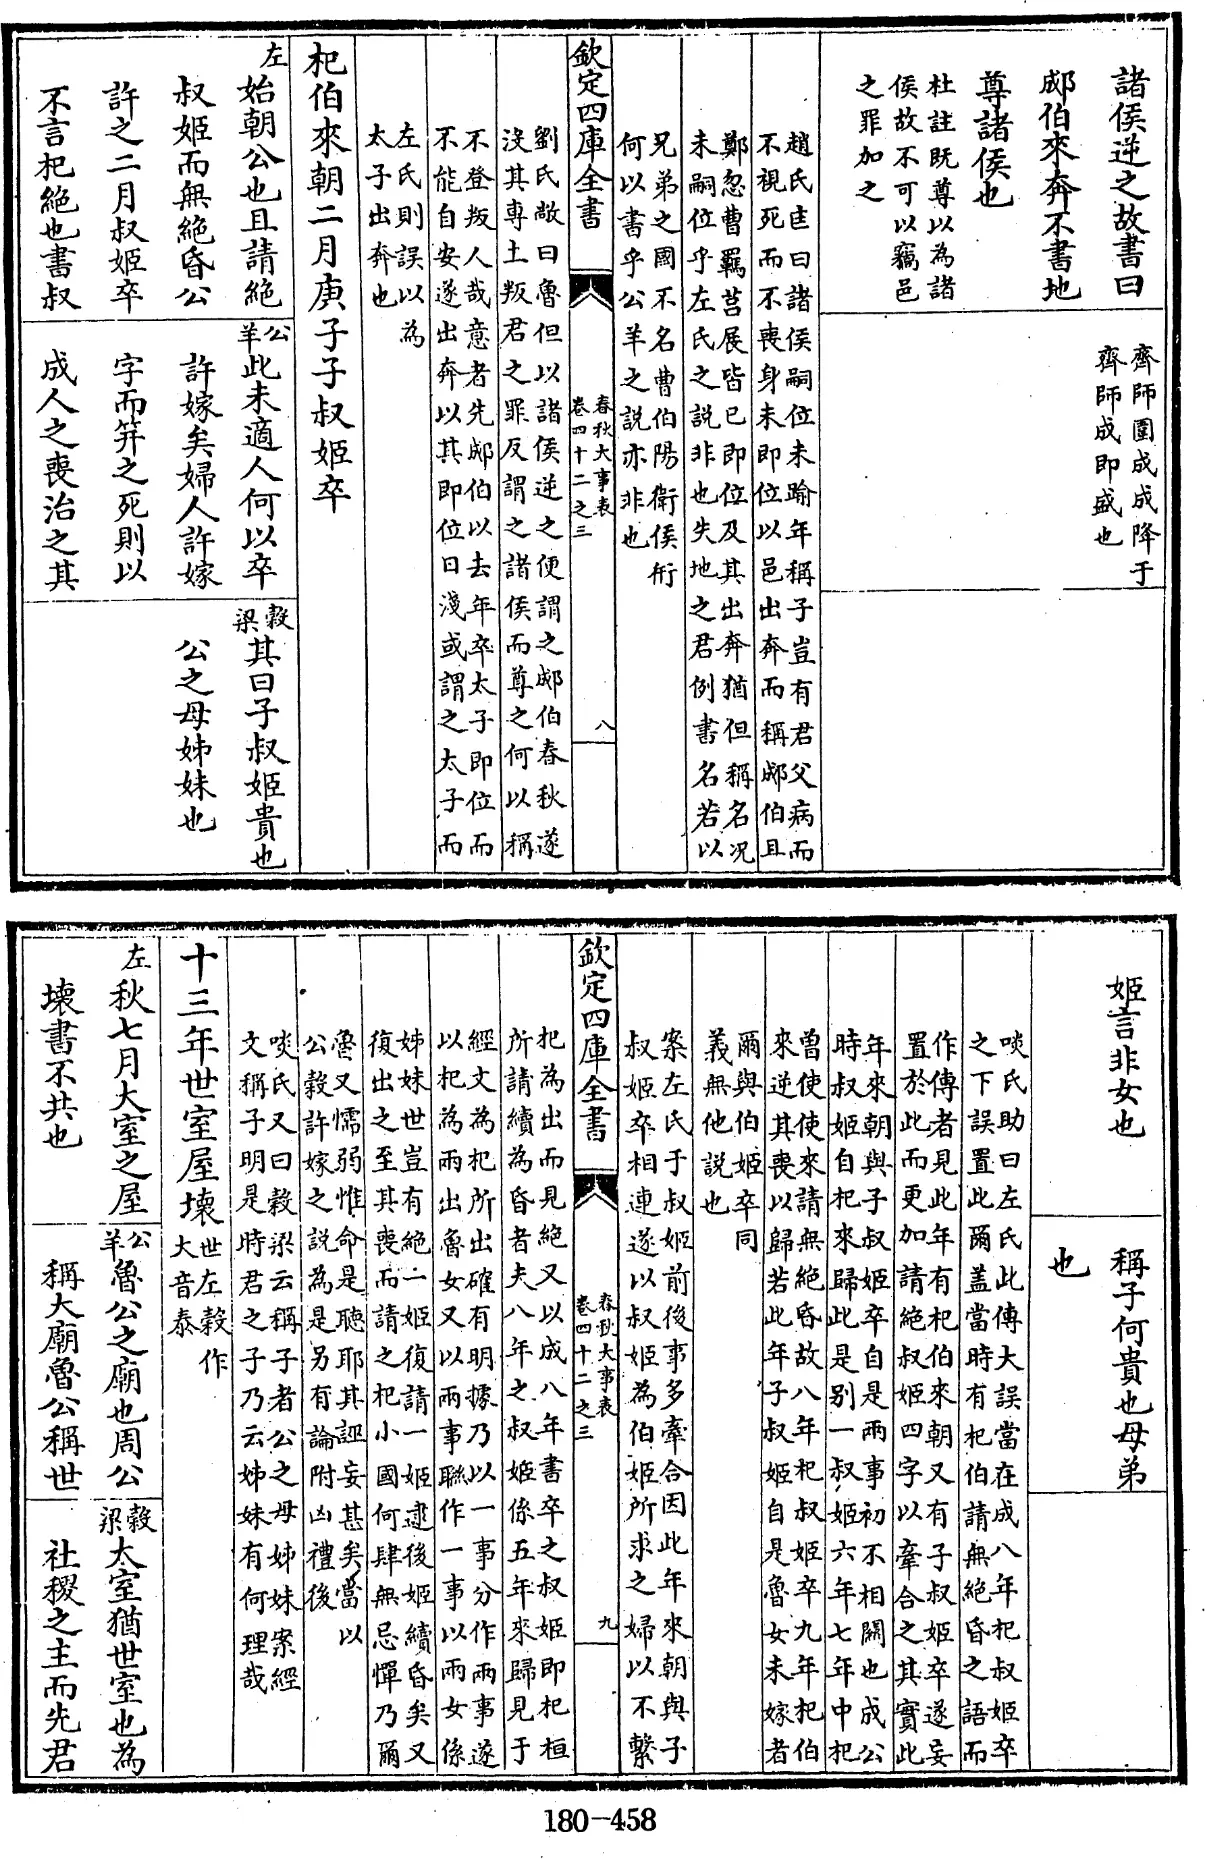 諸侯逆之故書曰
郕伯來奔不書地
尊諸侯也
杜註既尊以為諸
侯故不可以竊邑
之罪加之
齊師圍成成降于
齊師成即盛也
趙氏匡曰諸侯嗣位未踰年稱子豈有君父病而
不視死而不喪身未即位以邑出奔而稱郕伯且
鄭忽曹羈莒展皆已即位及其出奔猶但稱名况
未嗣位乎左氏之説非也失地之君例書名若以
兄弟之國不名曹伯陽衛侯衎
何以書乎公羊之説亦非也
欽定四庫全書
春秋大事表
卷四十二之三
八
劉氏敞曰魯但以諸侯逆之便謂之郕伯春秋遂
沒其專土叛君之罪反謂之諸侯而尊之何以稱
不登叛人哉意者先郕伯以去年卒太子即位而
不能自安遂出奔以其即位日淺或謂之太子而
左氏則誤以為
太子出奔也
杞伯來朝二月庚子子叔姬卒
左
始朝公也且請絶
叔姬而無絶昏公
許之二月叔姬卒
不言杞絶也書叔
公羊
此未適人何以卒
許嫁矣婦人許嫁
字而笄之死則以
成人之喪治之其
穀梁
其曰子叔姬貴也
公之母姊妹也
姬言非女也
稱子何貴也母弟
也
啖氏助曰左氏此傳大誤當在成八年杞叔姬卒
之下誤置此爾盖當時有杞伯請無絶昏之語而
作傳者見此年有杞伯來朝又有子叔姬卒遂妄
置於此而更加請絶叔姬四字以牽合之其實此
年來朝與子叔姬卒自是兩事初不相闗也成公
時叔姬自杞來歸此是别一叔姬六年七年中杞
曽使使來請無絶昏故八年杞叔姬卒九年杞伯
來逆其喪以歸若此年子叔姬自是魯女未嫁者
爾與伯姬卒同
義無他説也
案左氏于叔姬前後事多牽合因此年來朝與子
叔姬卒相連遂以叔姬為伯姬所求之婦以不繫
欽定四庫全書
春秋大事表
卷四十二之三
九
杞為出而見絶又以成八年書卒之叔姬即杞桓
所請續為昏者夫八年之叔姬係五年來歸見于
經文為杞所出確有明據乃以一事分作兩事遂
以杞為兩出魯女又以兩事聨作一事以兩女係
姊妹世豈有絶一姬復請一姬逮後姬續昏矣又
復出之至其喪而請之杞小國何肆無忌憚乃爾
魯又懦弱惟命是聽耶其誣妄甚矣當以
公穀許嫁之説為是另有論附凶禮後
啖氏又曰穀梁云稱子者公之母姊妹案經
文稱子明是時君之子乃云姊妹有何理哉
十三年世室屋壊
世左穀作
大音泰
左
秋七月大室之屋
壊書不共也
公羊
魯公之廟也周公
稱大廟魯公稱世
穀梁
太室猶世室也為
社稷之主而先君
180-458